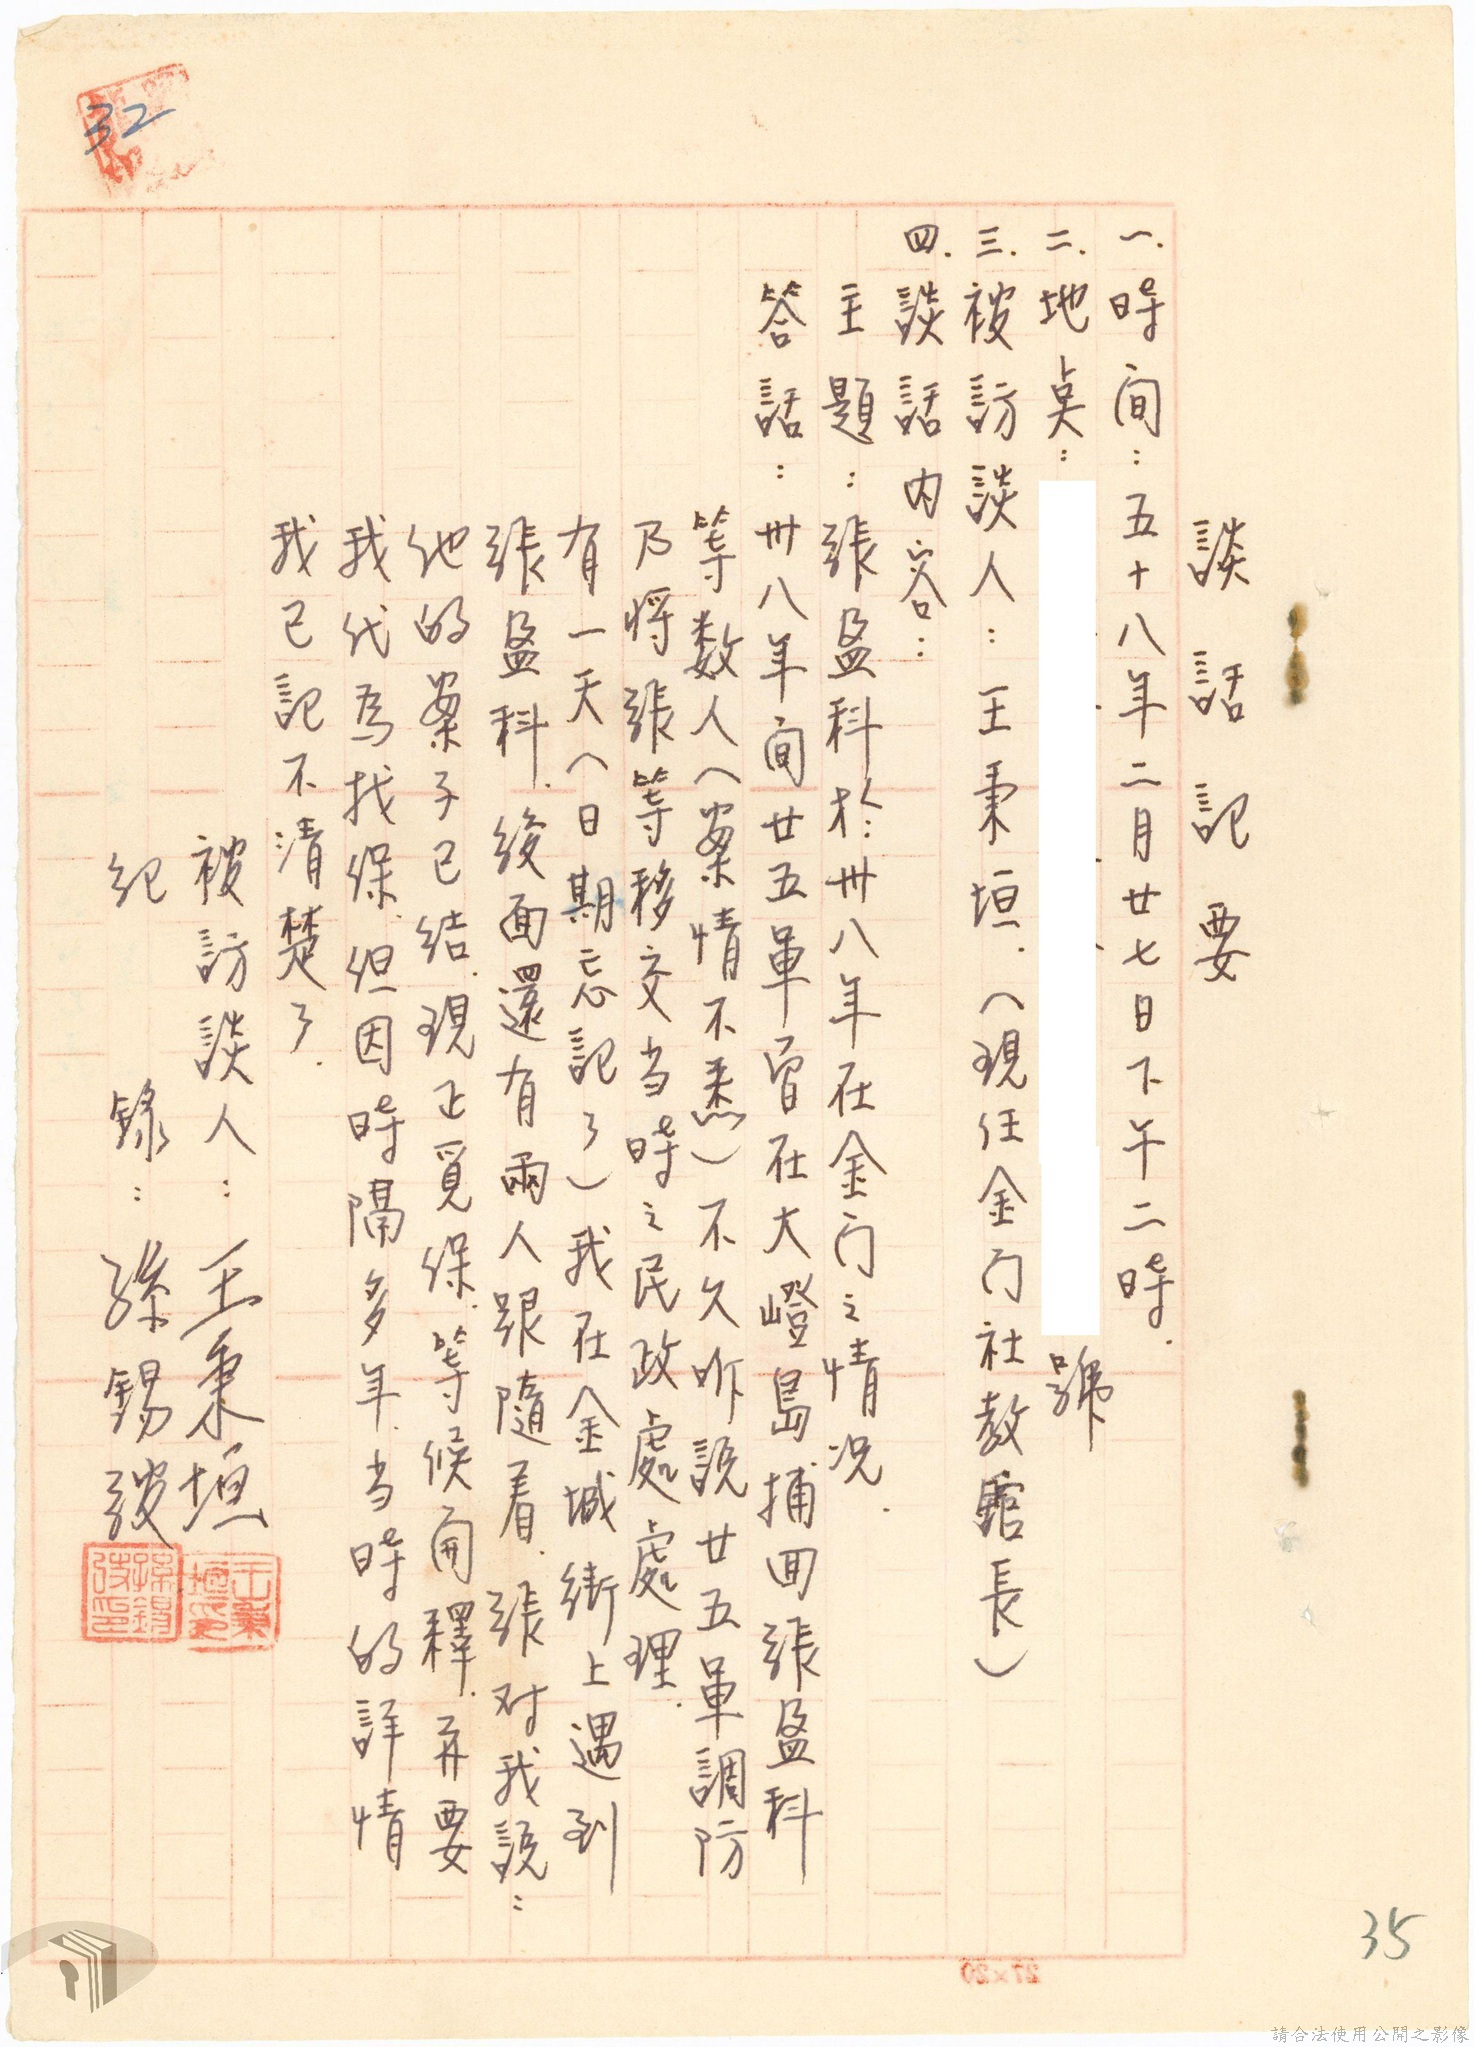 談話記要
一.時间：五十八年二月廿七日下午二時.
二.地点：
號
三.被訪談人：王秉垣.（現任金门社教舘長）
四.談話内容：
主題：張盈科於卅八年在金门之情况.
答話：卅八年间廿五軍曾在大嶝島捕回張盈科
等数人（案情不悉）不久咋説廿五軍調防
乃將張等移交当時之民政處處理.
有一天（日期忘記了）我在金城街上遇到
張盈科.後面還有兩人跟隨着.張对我説：
他的案子已結.現正覓保.等候甫釋.并要
我代為找保.但因時隔多年.当時的詳情
我已記不清楚了.
被訪談人：王秉垣
紀錄：孫錫
32
35
27×20
請合法使用公開之影像